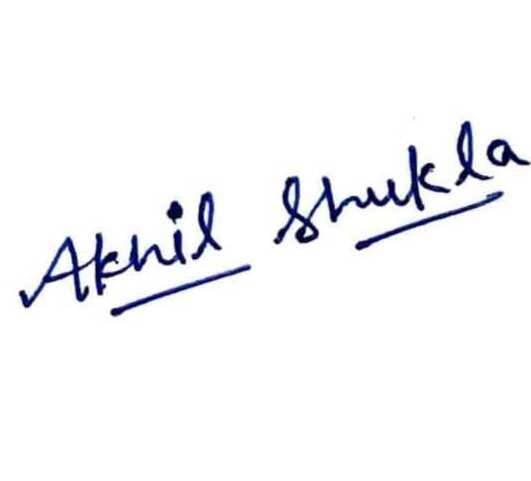 Akhil Shukla